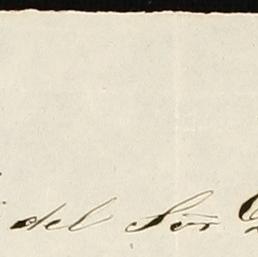 del Sōr